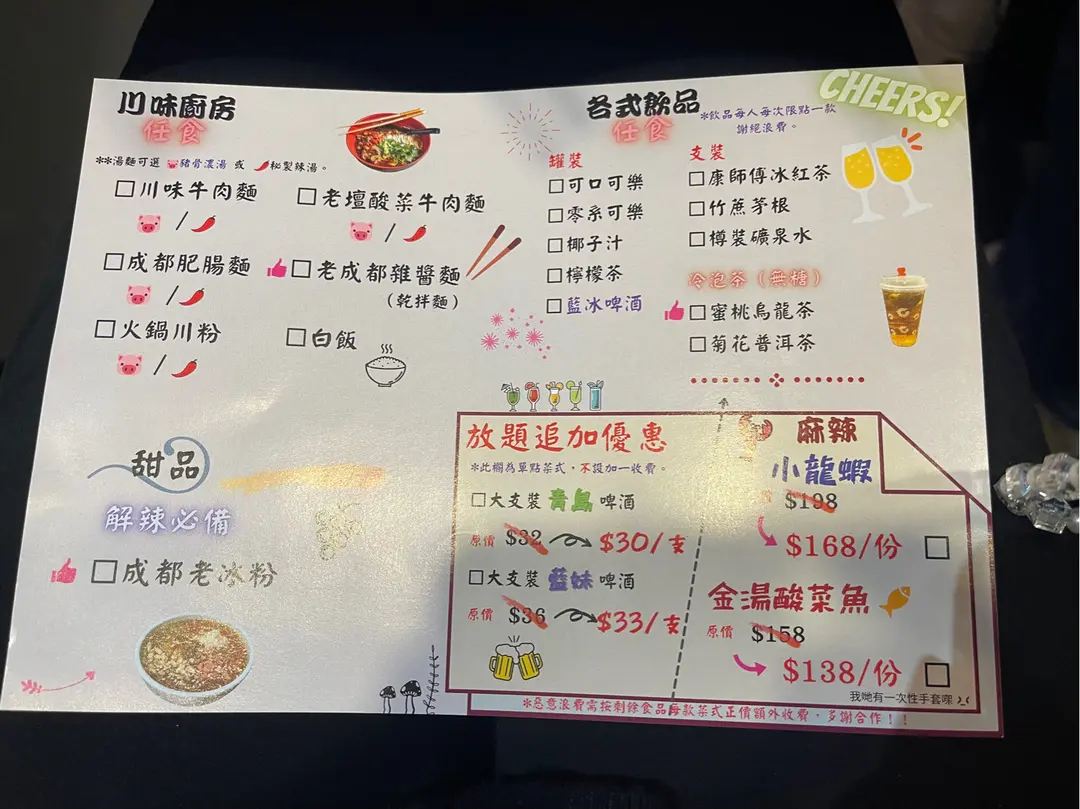 川味廚房
任食
**湯麵可選 豬骨濃湯 或 秘製辣湯。
川味牛肉麵
老壇酸菜牛肉麵
/
/
成都肥腸麵
老成都雜醬麵
(乾拌麵)
/
火鍋川粉
白飯
/
甜品
解辣必備
成都老冰粉
各式飲品
任食
*飲品每人每次限點一款
謝絕浪費。
CHEERS!
罐裝
可口可樂
零系可樂
椰子汁
檸檬茶
藍冰啤酒
支裝
康師傅冰紅茶
竹蔗茅根
樽裝礦泉水
冷泡茶(無糖)
蜜桃烏龍茶
菊花普洱茶
放題追加優惠
*此欄為單點菜式,不設加一收費。
大支裝 青島 啤酒
原價 $32 $30/支
大支裝 藍妹 啤酒
原價 $36 $33/支
麻辣
小龍蝦
$198
$168/份
金湯酸菜魚
原價 $158
$138/份
我哋有一次性手套㗎
*惡意浪費需按剩餘食品每款菜式正價額外收費,多謝合作!!